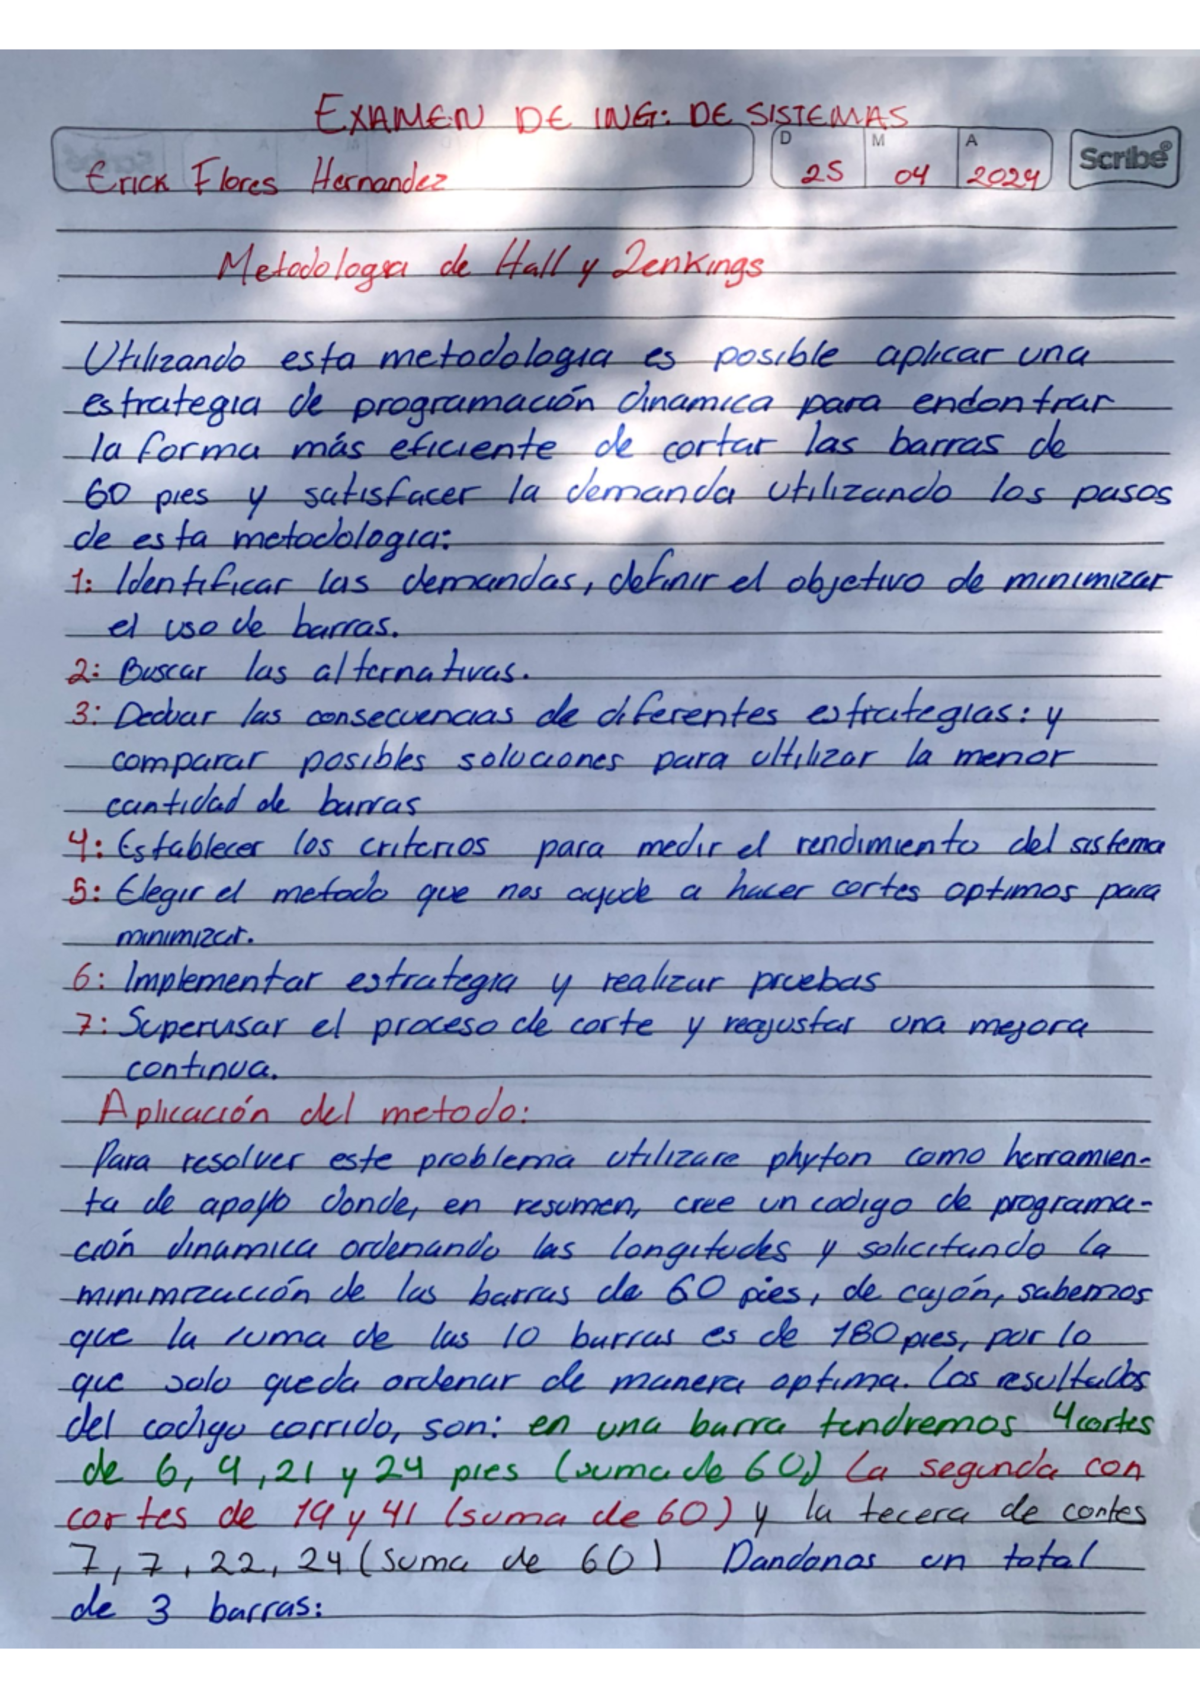 EXAMEN DE ING: DE SISTEMAS
D M A
Scribe
Erick Flores Hernandez 25 04 2024
Metodologia de Hall y Jenkings
Utilizando esta metodologia es posible aplicar una
estrategia de programación dinamica para endontrar
la forma más eficiente de cortar las barras de
60 pies y satisfacer la demanda utilizando los pasos
de esta metodologia:
1: Identificar las demandas, definir el objetivo de minimizar
el uso de barras.
2: Buscar las alternativas.
3: Deducir las consecuencias de diferentes estrategias: y
comparar posibles soluciones para ultilizar la menor
cantidad de barras
4: Establecer los criterios para medir el rendimiento del sistema
5: Elegir el metodo que nos ayude a hacer cortes optimos para
minimizar.
6: Implementar estrategia y realizar pruebas
7: Supervisar el proceso de corte y reajustar una mejora
continua.
Aplicación del metodo:
Para resolver este problema utilizare phyton como herramien-
ta de apoyo donde, en resumen, cree un codigo de programa-
ción dinamica ordenando las longitudes y solicitando la
minimización de las barras de 60 pies, de cajón, sabemos
que la suma de las 10 barras es de 180 pies, por lo
que solo queda ordenar de manera optima. Los resultados
del codigo corrido, son: en una barra tendremos 4 cortes
de 6, 9, 21 y 24 pies (suma de 60) La segunda con
cortes de 19 y 41 (suma de 60) y la tecera de cortes
7, 7, 22, 24 (suma de 60) Dandonos un total
de 3 barras: